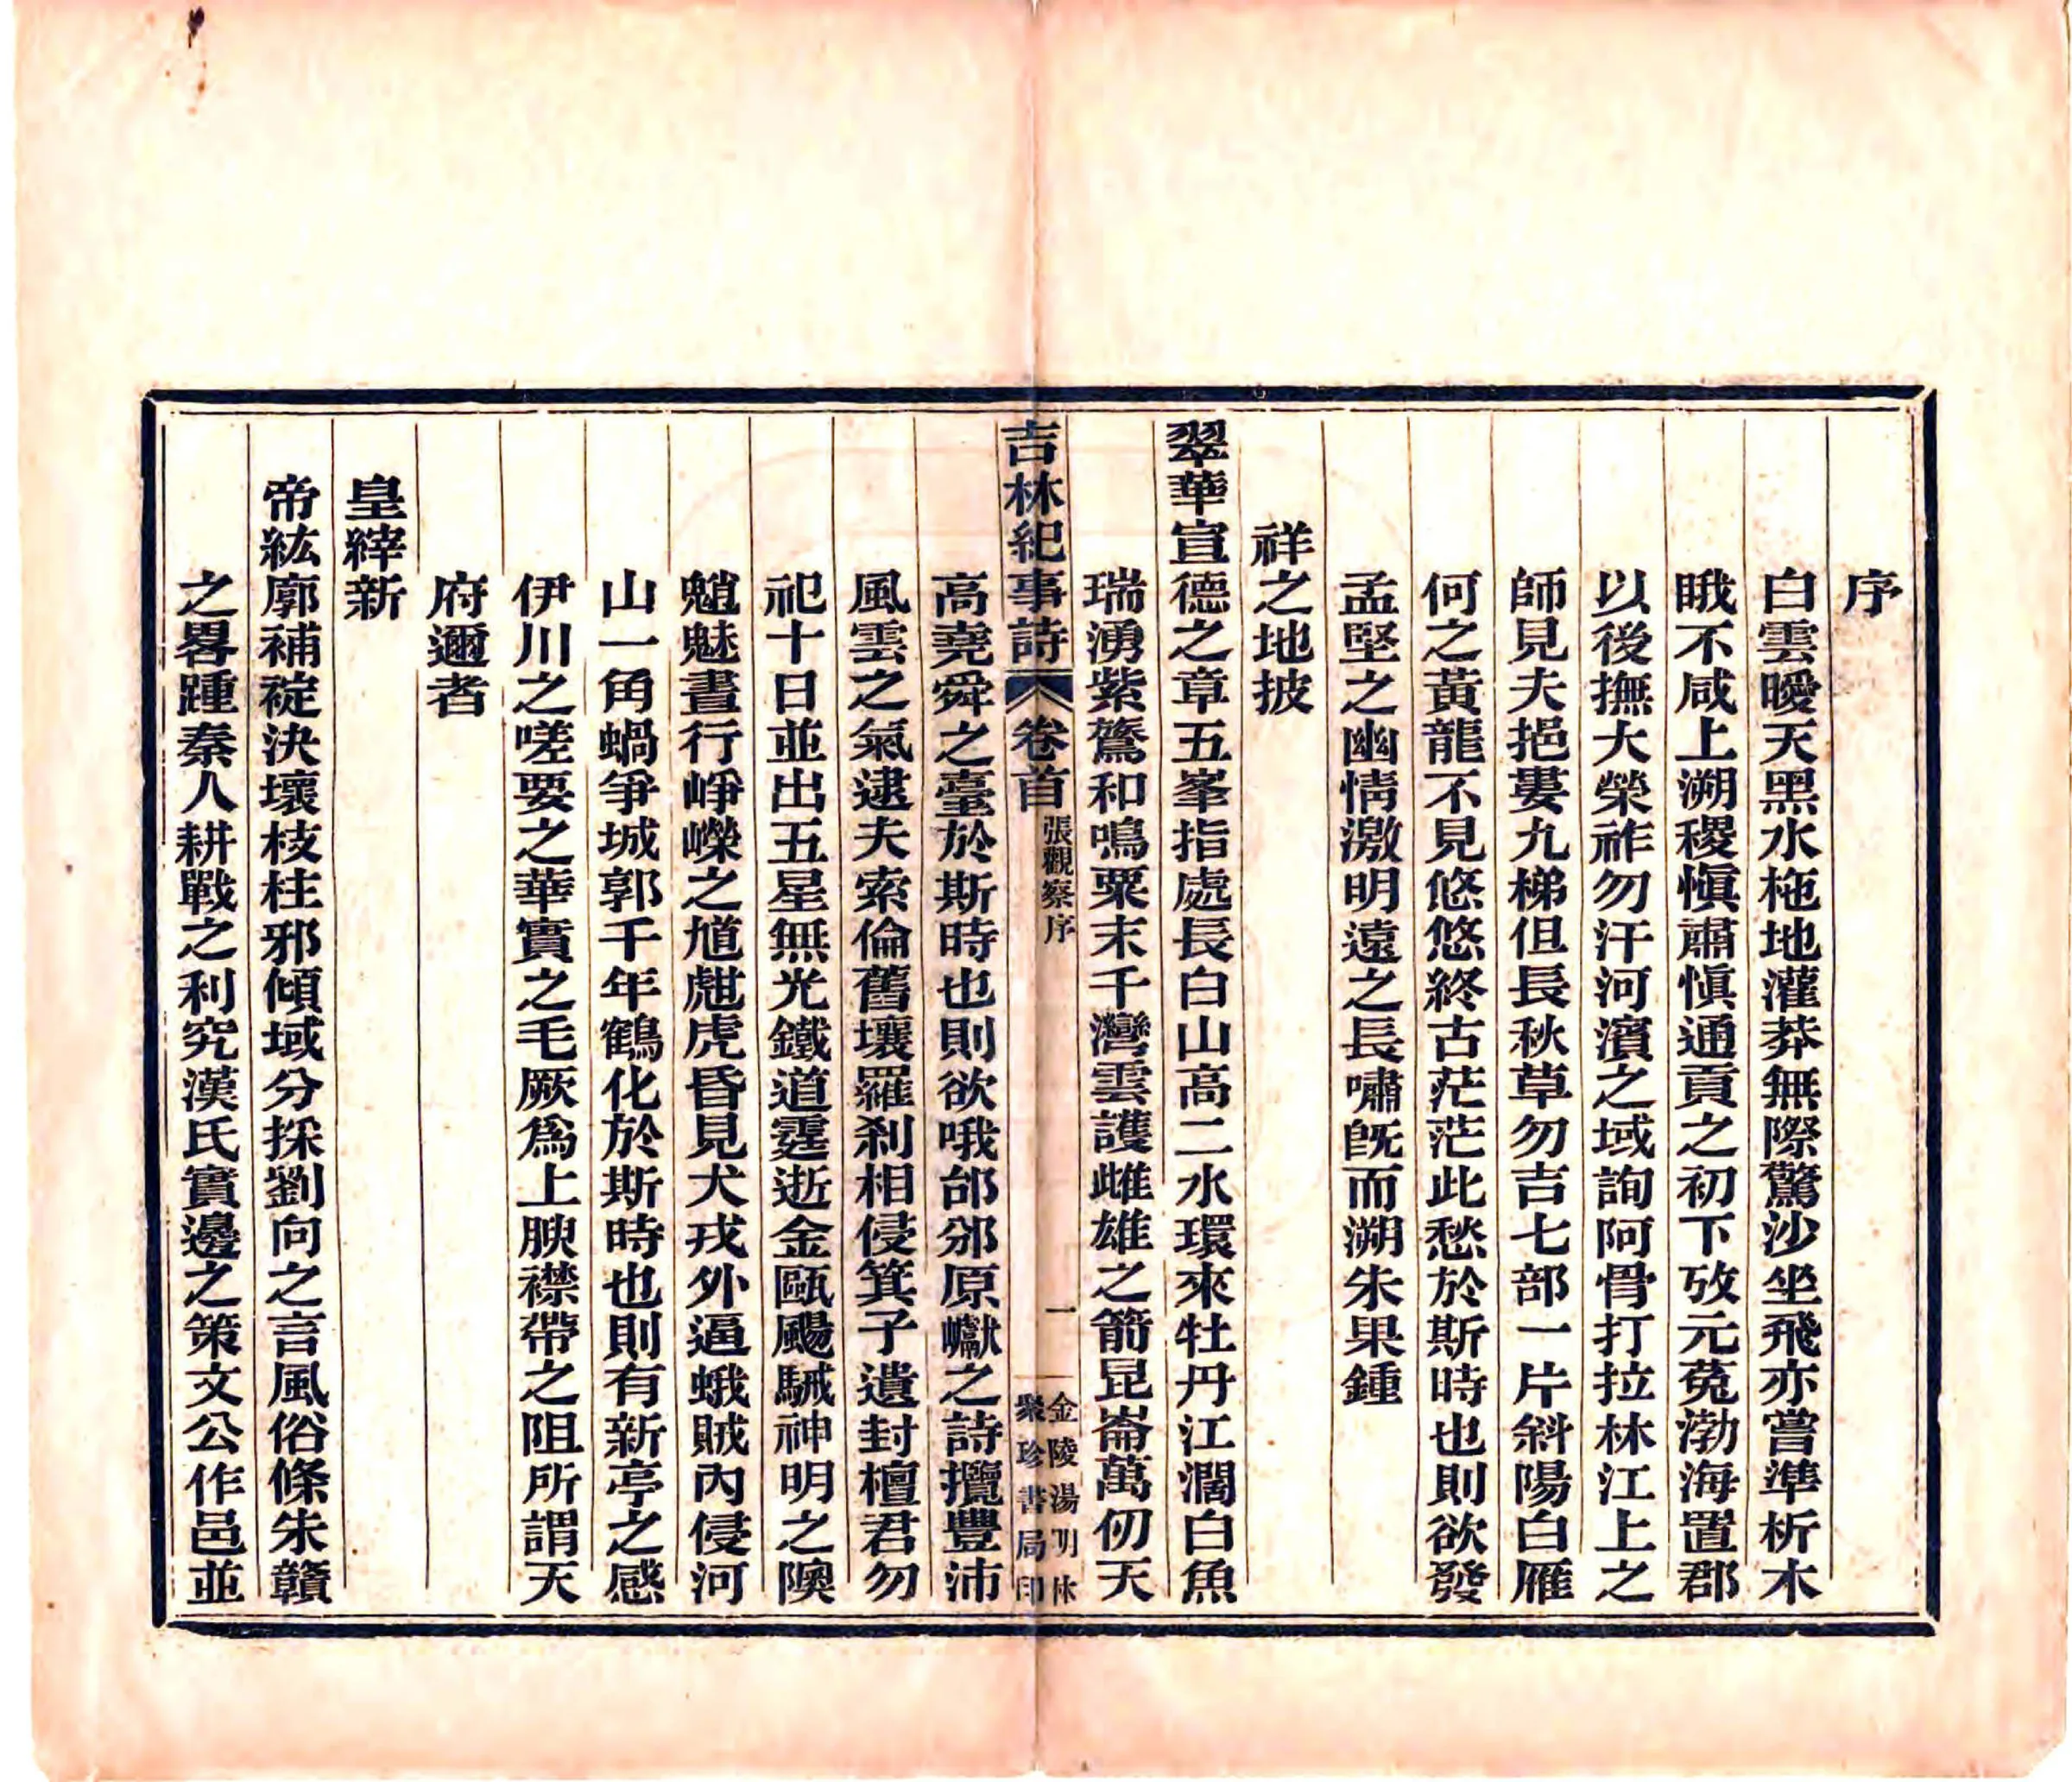 序
白雲曖天黑水柂地灌莽無際驚沙坐飛亦嘗準析木
睋不咸上溯稷愼肅愼通貢之初下攷元菟渤海置郡
以後撫大榮祚勿汗河濱之域詢阿骨打拉林江上之
師見夫挹婁九梯但長秋草勿吉七部一片斜陽白雁
何之黃龍不見悠悠終古茫茫此愁於斯時也則欲發
孟堅之幽情激明遠之長嘯旣而溯朱果鍾
祥之地披
翠華宣德之章五峯指處長白山高二水環來牡丹江濶白魚
瑞湧紫鶱和鳴粟末千灣雲護雌雄之箭昆崙萬仞天
吉林紀事詩 卷首 張觀察序 一 金陵湯明林聚珍書局印
高堯舜之臺於斯時也則欲哦邰邠原巘之詩攬豐沛
風雲之氣逮夫索倫舊壤羅刹相侵箕子遺封檀君勿
祀十日並出五星無光鐵道霆逝金甌颺駴神明之隩
魈魅晝行崢嶸之馗虣虎昏見犬戎外逼蛾賊內侵河
山一角蝸爭城郭千年鶴化於斯時也則有新亭之感
伊川之嗟要之華實之毛厥爲上腴襟帶之阻所謂天
府邇者
皇縡新
帝紘廓補裧決壞枝柱邪傾域分採劉向之言風俗條朱贛
之畧踵秦人耕戰之利究漢氏實邊之策文公作邑並